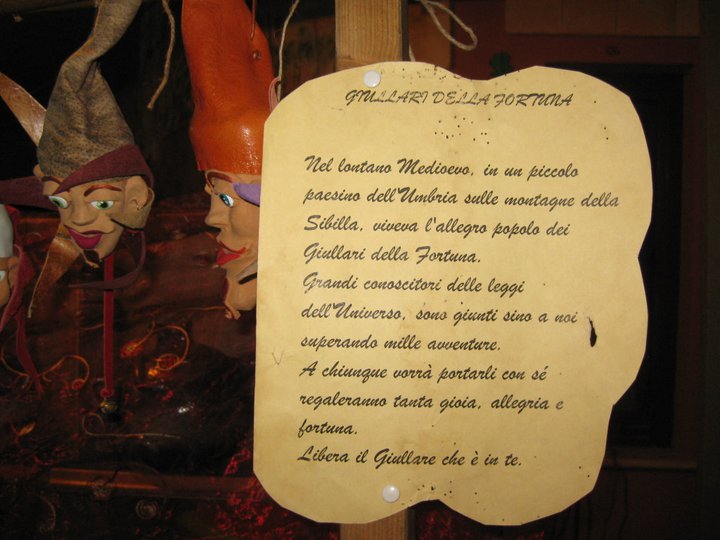 GIULLARI DELLA FORTUNA
Nel lontano Medioevo, in un piccolo
paesino dell'Umbria sulle montagne della
Sibilla, viveva l'allegro popolo dei
Giullari della Fortuna.
Grandi conoscitori delle leggi
dell'Universo, sono giunti sino a noi
superando mille avventure.
A chiunque vorrà portarli con sé
regaleranno tanta gioia, allegria e
fortuna.
Libera il Giullare che è in te.